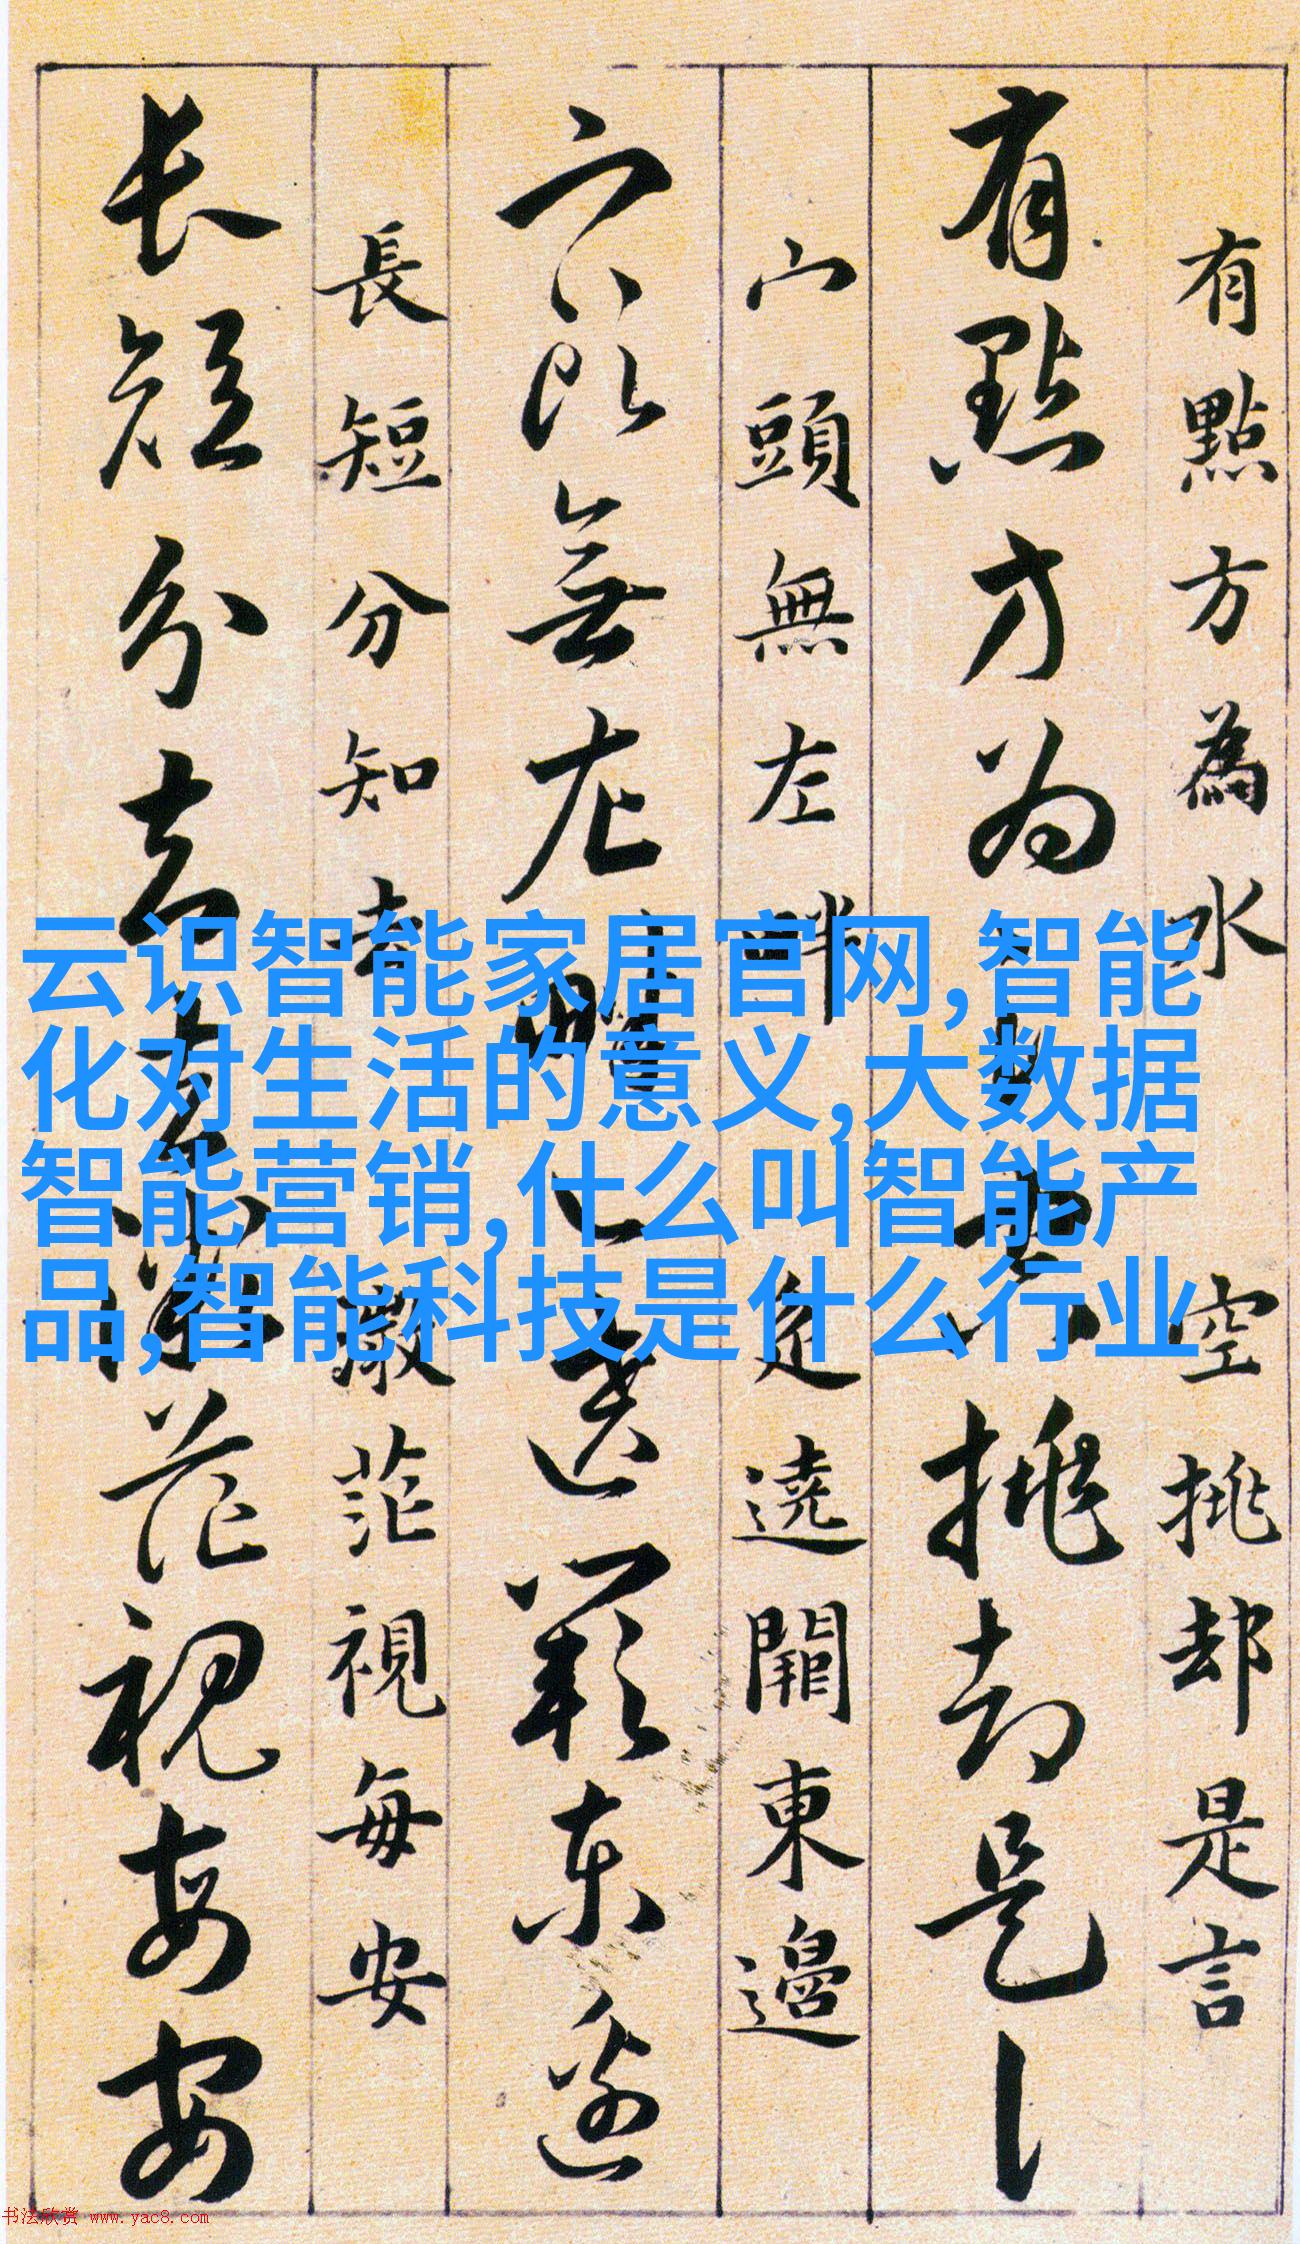 有點方為水空挑却是言
有點方為水空挑却是讠
宀頭無左畔辵遶闕東邊
宀頭無左畔辵遶闕東邊
長短分知去微茫視每安
長短分知去微茫視每安
云识智能家居官网,智能
化对生活的意义,大数据
智能营销,什么叫智能产
品,智能科技是什么行业
书法欣赏 www.yac8.com